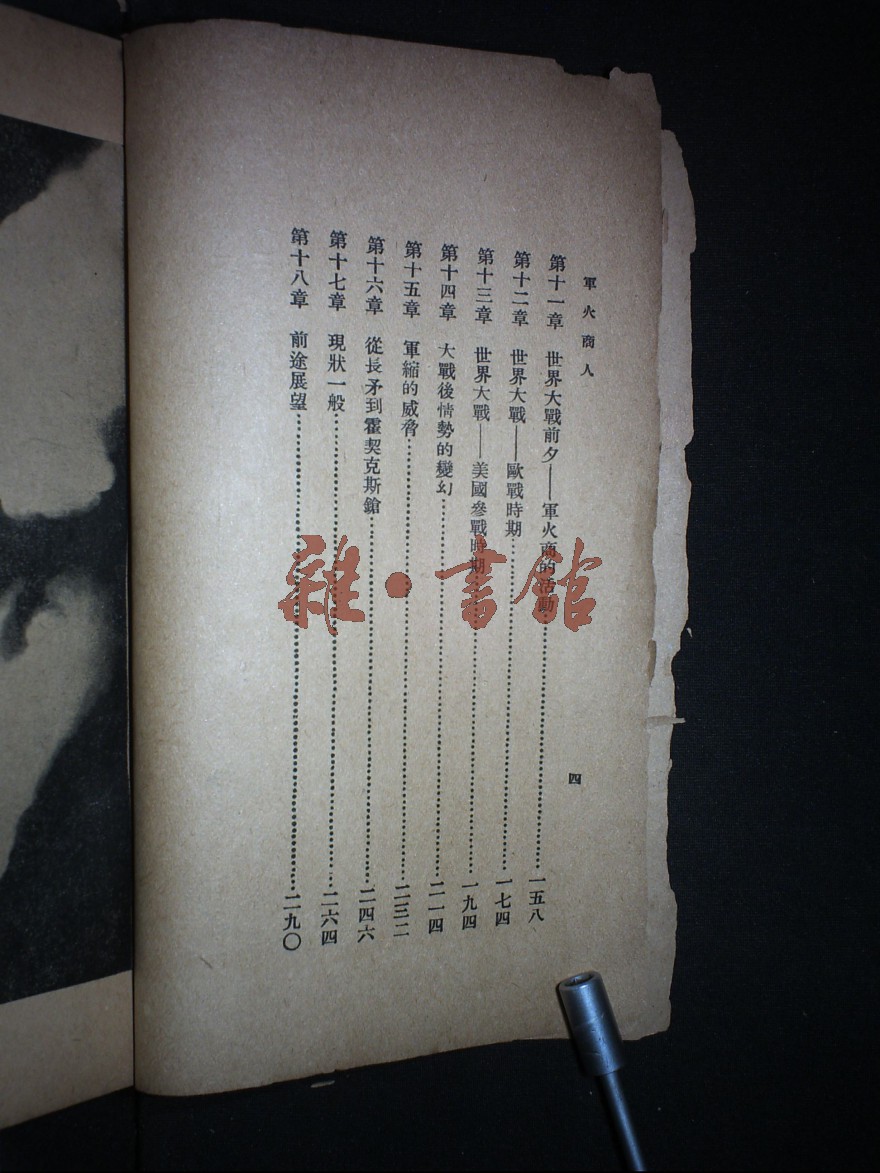 軍火商人
第十一章 世界大戰前夕——軍火商的活動……一五八
第十二章 世界大戰——歐戰時期……一七四
第十三章 世界大戰——美國參戰時期……一九四
第十四章 大戰後情勢的變幻……二一四
第十五章 軍縮的威脅……二三二
第十六章 從長矛到霍契克斯鎗……二四六
第十七章 現狀一般……二六四
第十八章 前途展望……二九〇
四
雜·書館